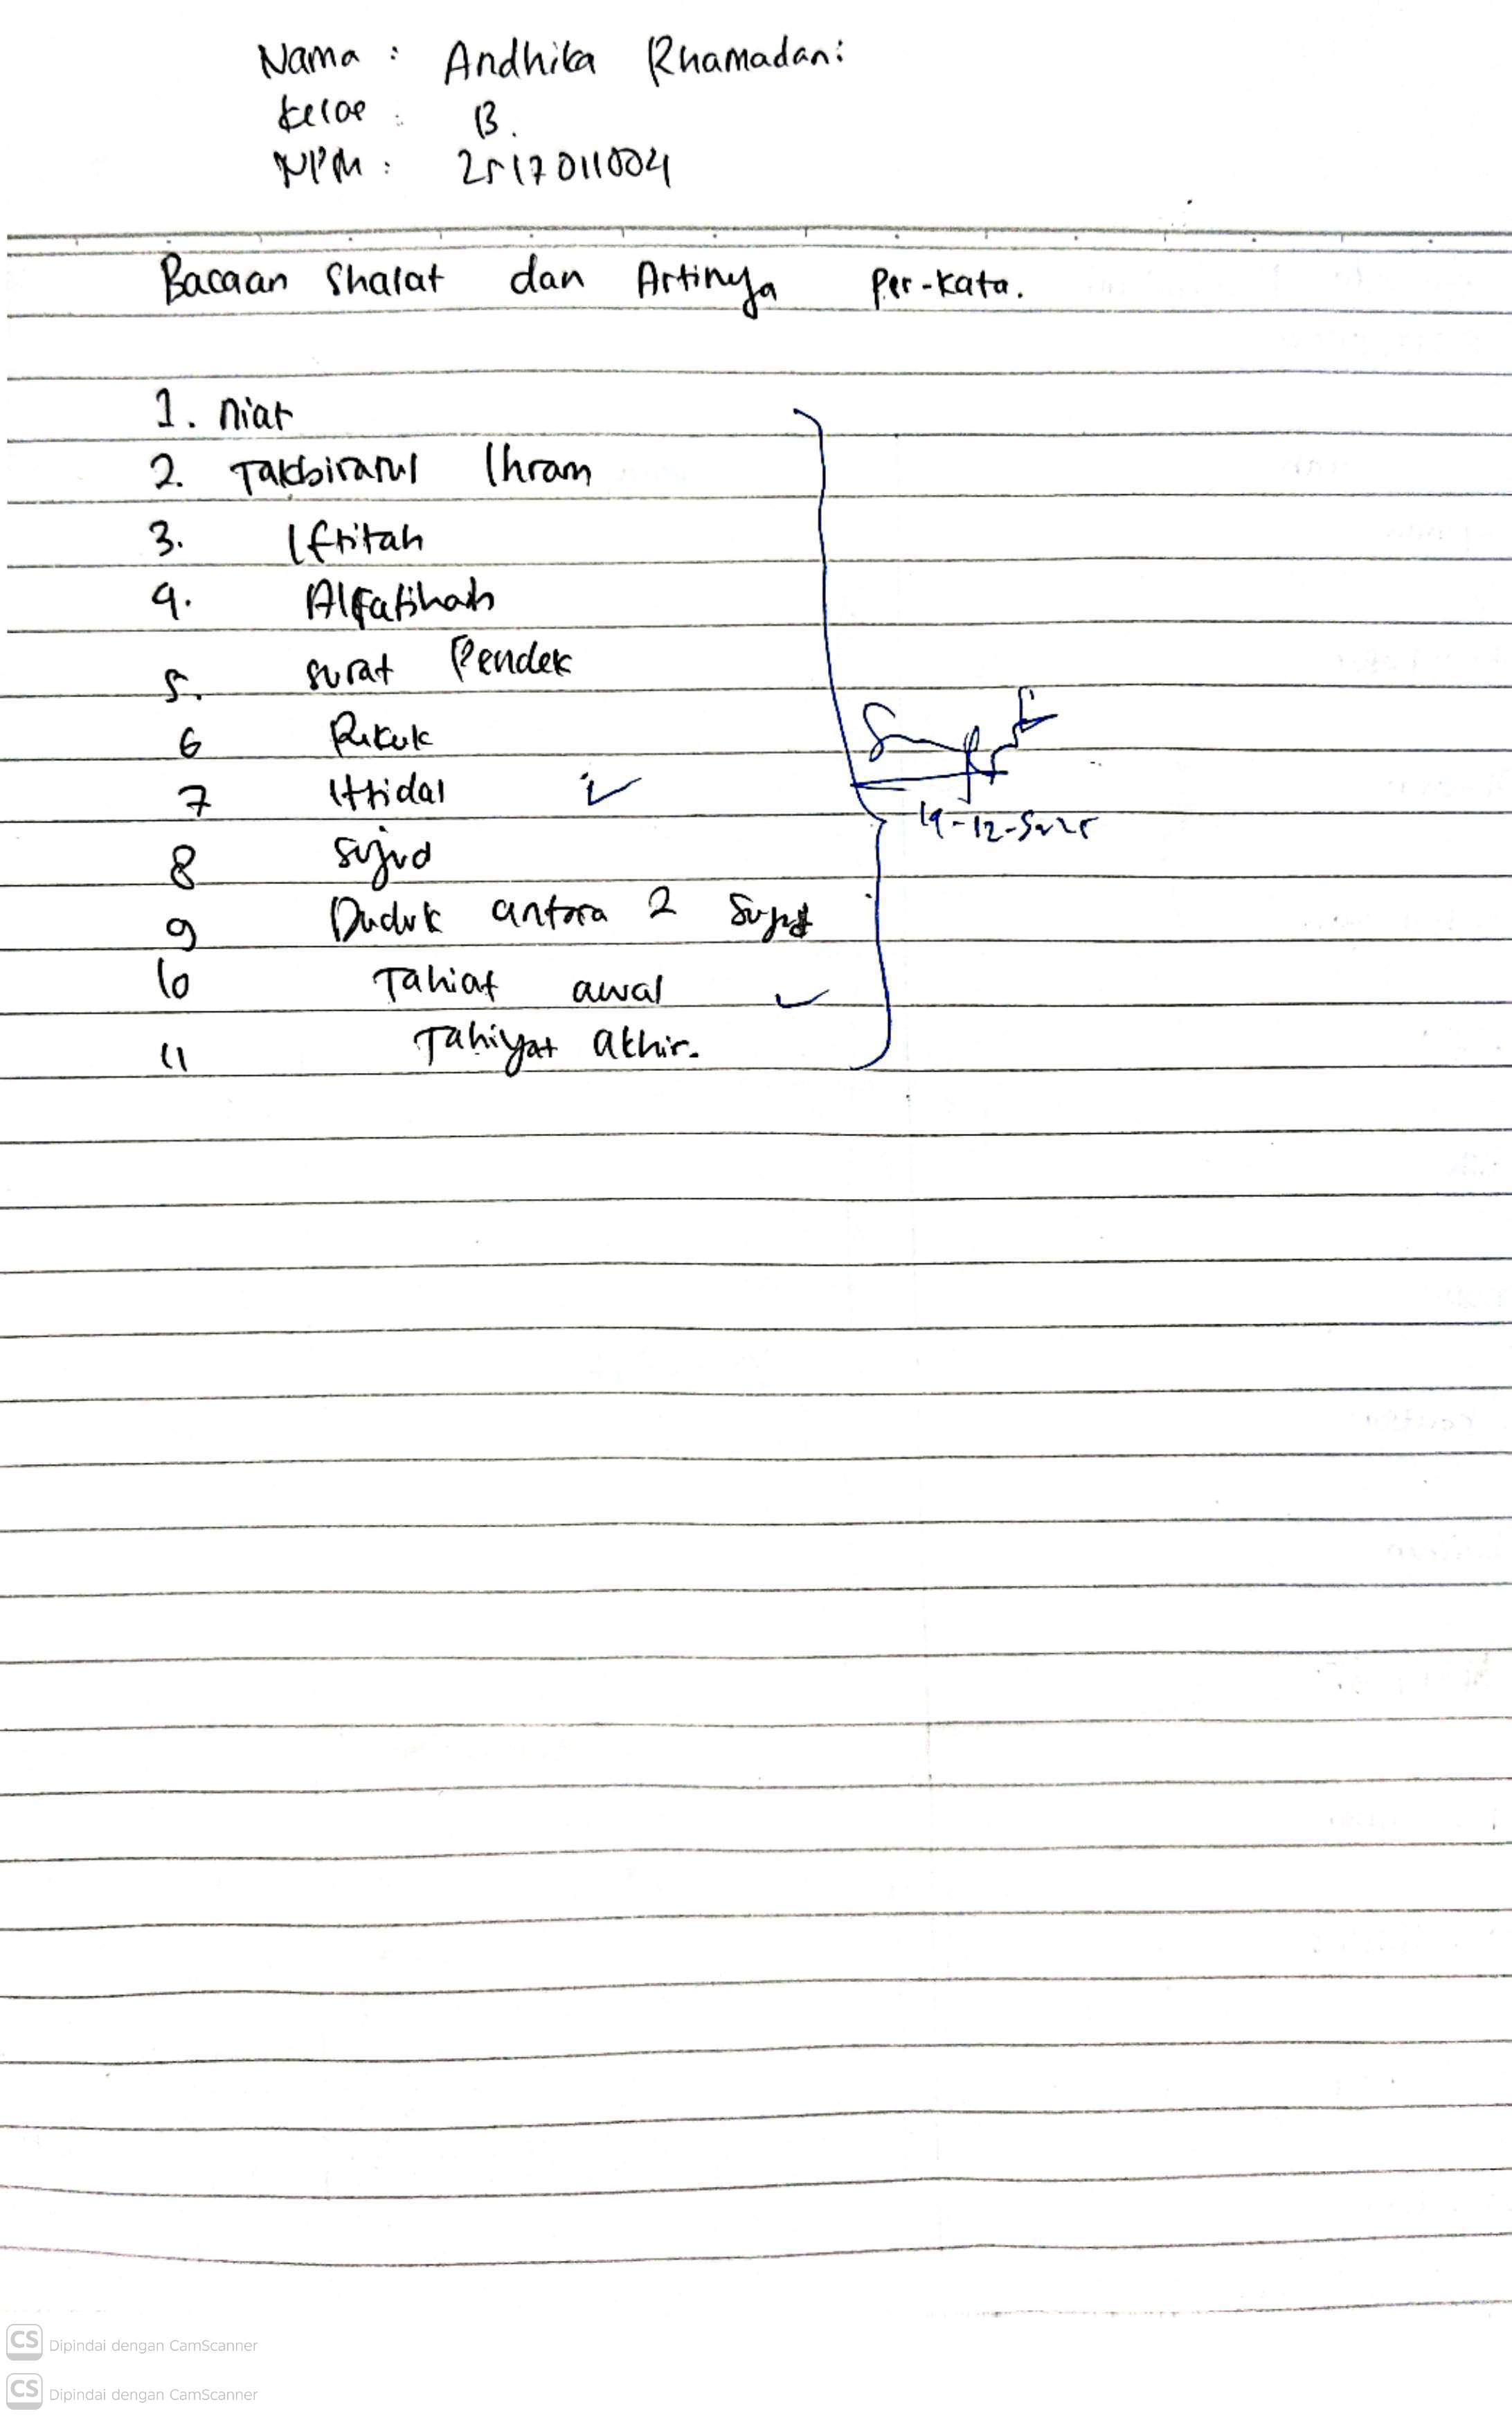 Nama : Andhika Rhamadani
Kelas : B.
NPM : 2517011004
Bacaan Shalat dan Artinya Per-kata.
1. niat
2. Takbiratul Ihram
3. Iftitah
4. Alfatihah
5. surat Pendek
6 Rukuk
7 Ittidal
8 sujud
9 Duduk antara 2 Sujud
10 Tahiat awal
11 Tahiyat akhir.
CS Dipindai dengan CamScanner
CS Dipindai dengan CamScanner